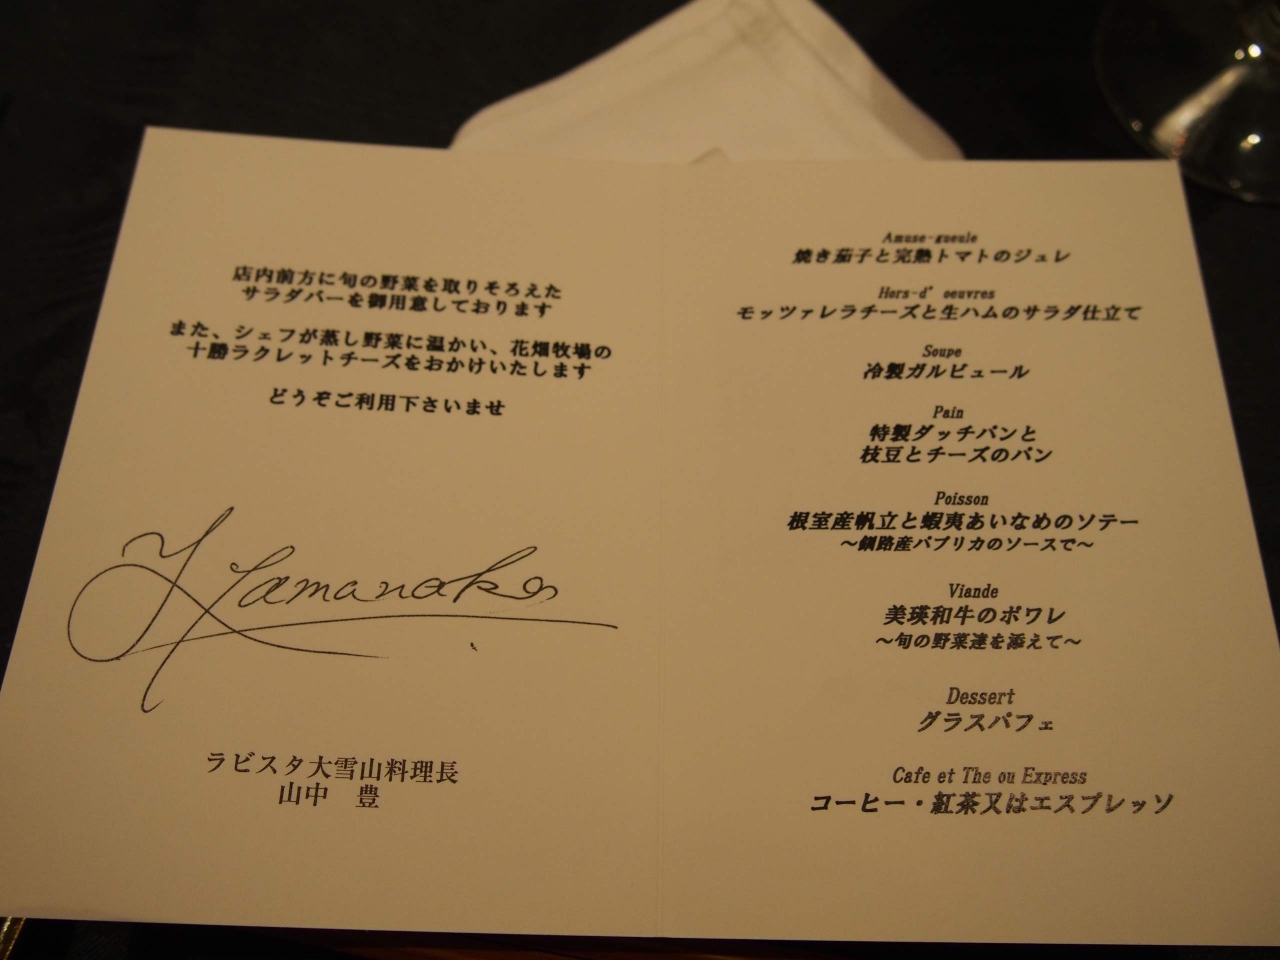 店内前方に旬の野菜を取りそろえた
サラダバーを御用意しております
また、シェフが蒸し野菜に温かい、花畑牧場の
十勝ラクレットチーズをおかけいたします
どうぞご利用下さいませ
Y Yamanaka
ラビスタ大雪山料理長
山中 豊
Amuse-gueule
焼き茄子と完熟トマトのジュレ
Hors-d’oeuvres
モッツァレラチーズと生ハムのサラダ仕立て
Soupe
冷製ガルビュール
Pain
特製ダッチパンと
枝豆とチーズのパン
Poisson
根室産帆立と蝦夷あいなめのソテー
～釧路産パプリカのソースで～
Viande
美瑛和牛のポワレ
～旬の野菜達を添えて～
Dessert
グラスパフェ
Cafe et The ou Express
コーヒー・紅茶又はエスプレッソ